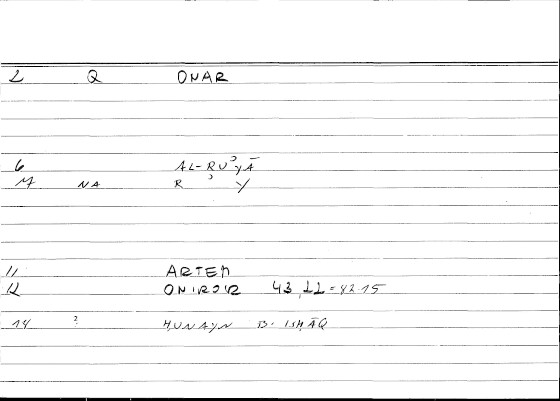 2 Q ONAR
6 AL-RUʾYĀ
M NA R ʾ Y
11 ARTEM
12 ONIROIR 43,22 = 42.15
14 ? ḤUNAYN B. ISḤĀQ